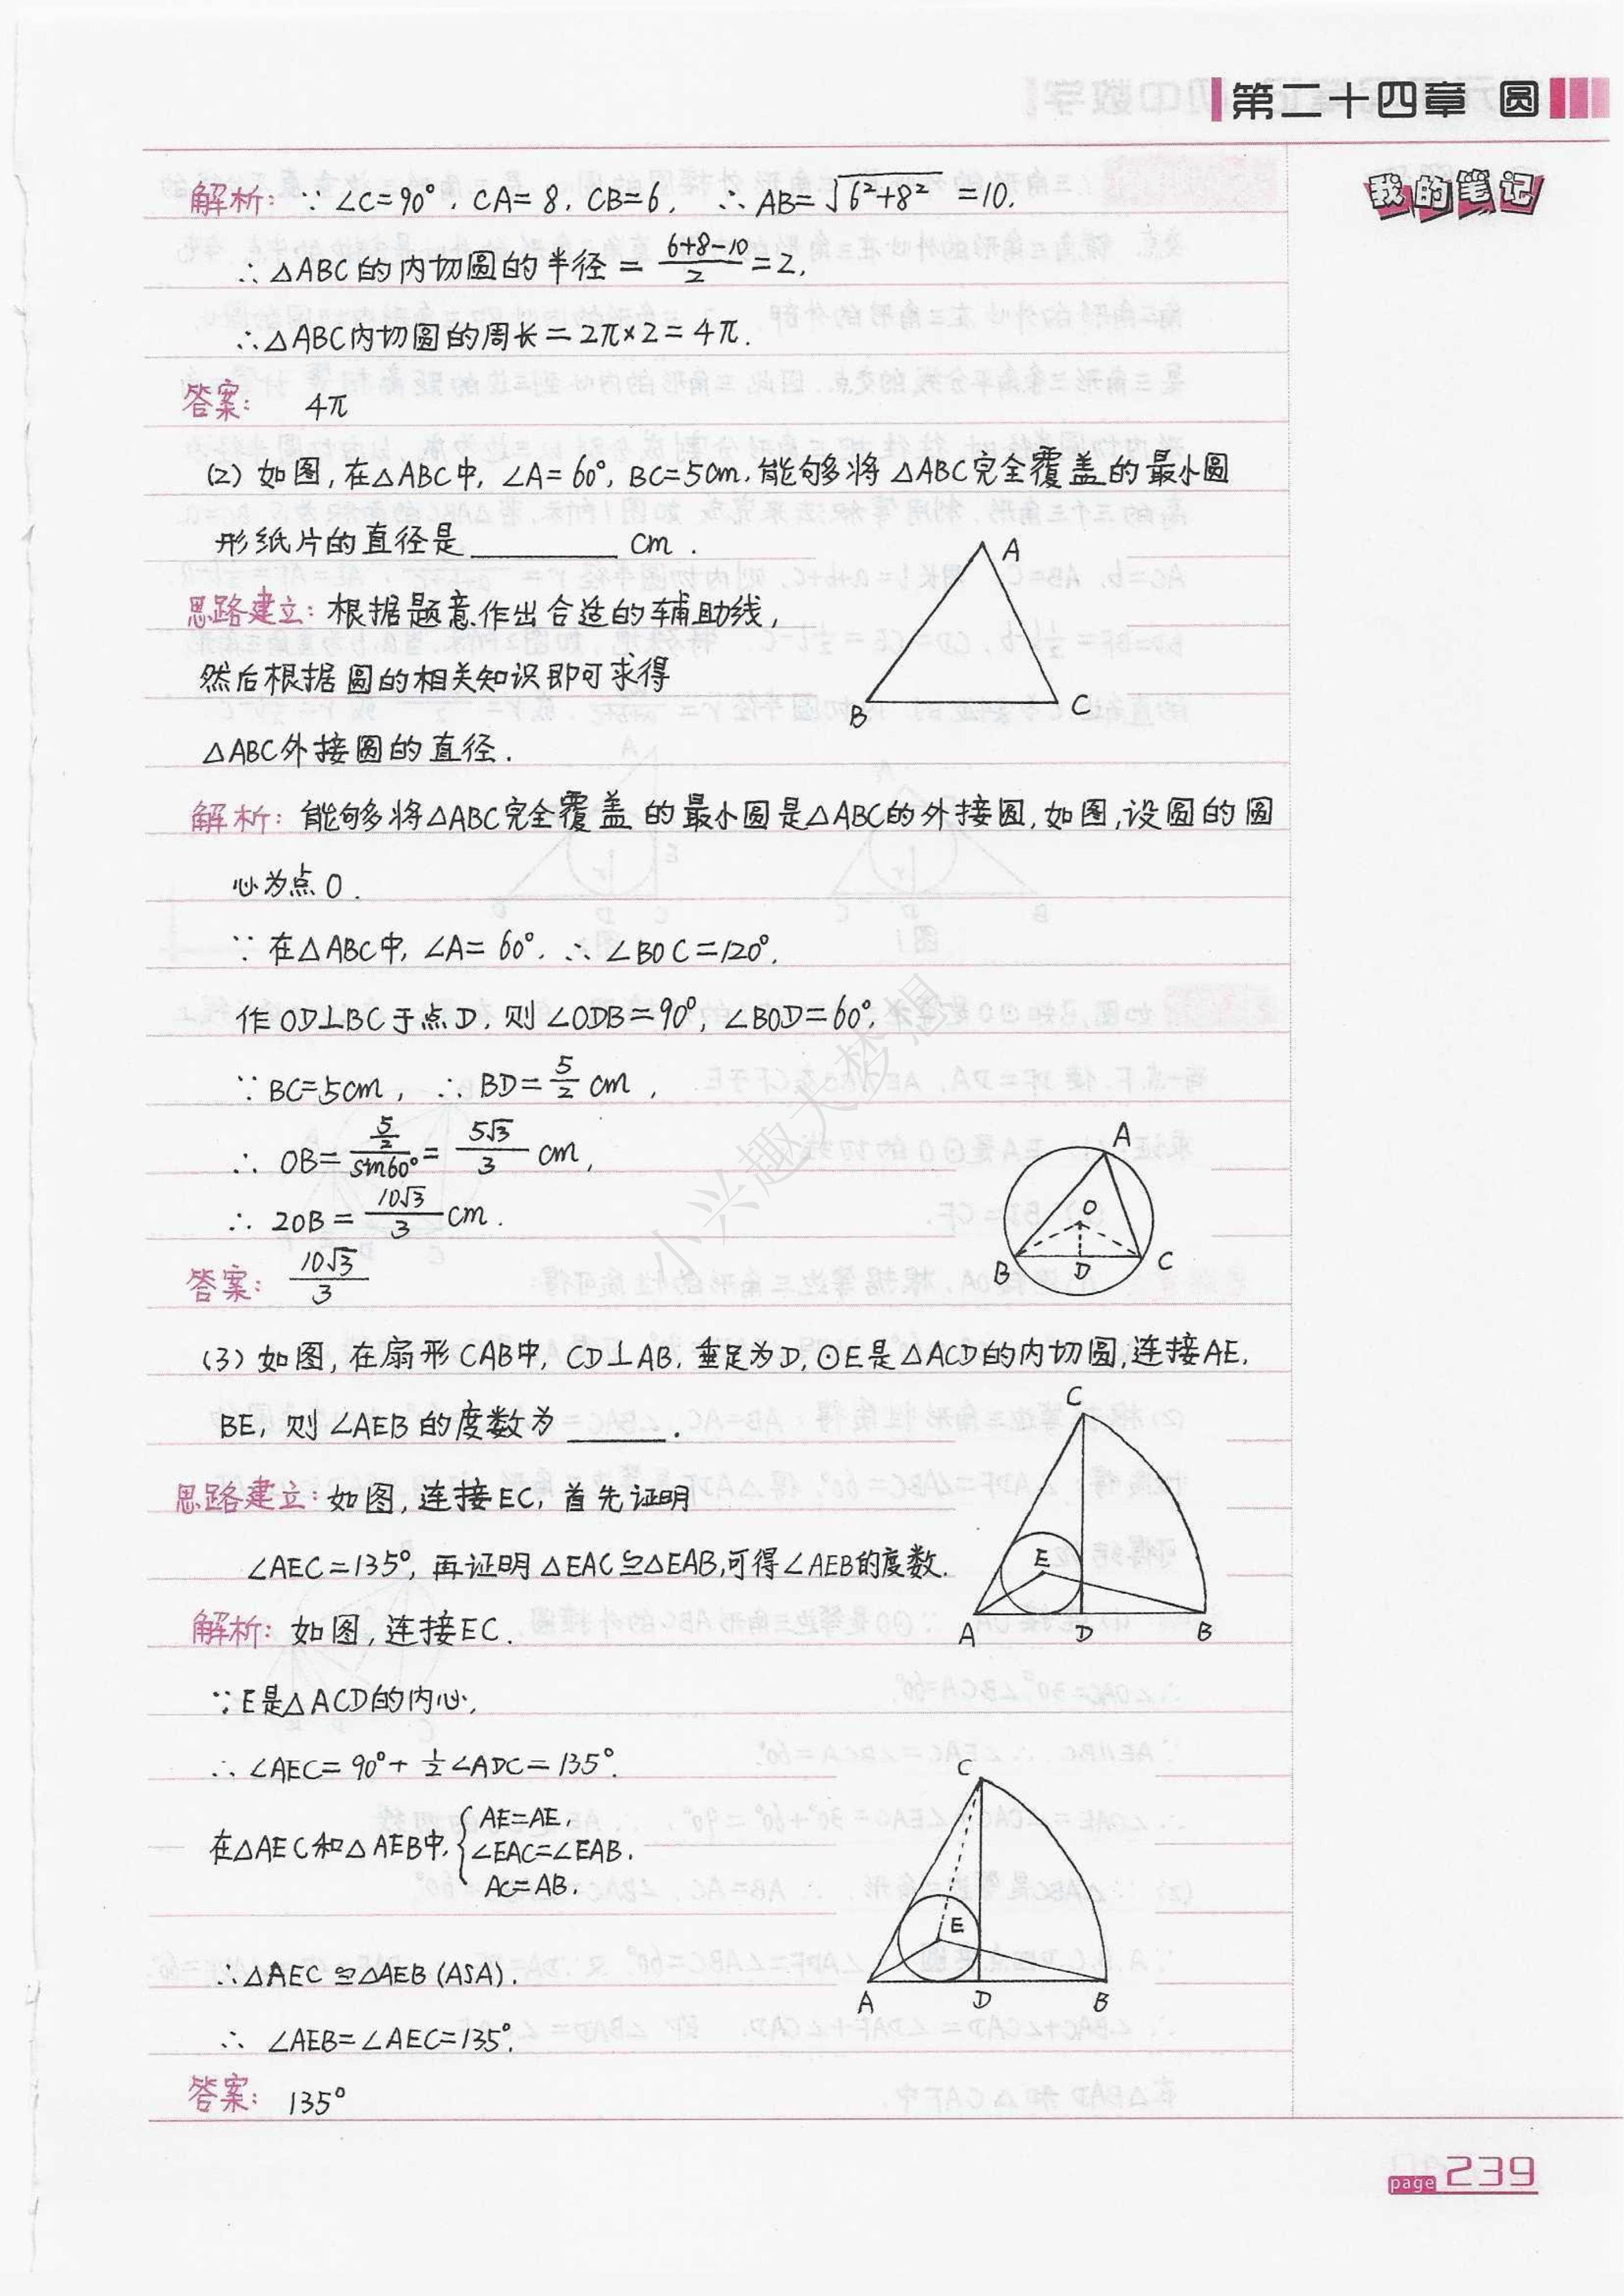 第二十四章 圆
我的笔记
解析: ∵ ∠C=90°, CA=8, CB=6, ∴ AB=√(6²+8²)=10.
∴ △ABC的内切圆的半径=(6+8-10)/2=2,
∴ △ABC内切圆的周长=2π×2=4π.
答案: 4π
(2) 如图, 在△ABC中, ∠A=60°, BC=5cm, 能够将△ABC完全覆盖的最小圆
形纸片的直径是________ cm.
A
B
C
思路建立: 根据题意作出合适的辅助线,
然后根据圆的相关知识即可求得
△ABC外接圆的直径.
解析: 能够将△ABC完全覆盖的最小圆是△ABC的外接圆, 如图, 设圆的圆
心为点O.
∵ 在△ABC中, ∠A=60°, ∴ ∠BOC=120°,
作OD⊥BC于点D, 则∠ODB=90°, ∠BOD=60°,
∵ BC=5cm, ∴ BD=5/2 cm,
∴ OB=(5/2)/sin60°=5√3/3 cm,
∴ 2OB=10√3/3 cm.
A
O
B
D
C
答案: 10√3/3
(3) 如图, 在扇形CAB中, CD⊥AB, 垂足为D, ⊙E是△ACD的内切圆, 连接AE,
BE, 则∠AEB的度数为______.
C
E
A
D
B
思路建立: 如图, 连接EC, 首先证明
∠AEC=135°, 再证明△EAC≌△EAB, 可得∠AEB的度数.
解析: 如图, 连接EC.
∵ E是△ACD的内心,
∴ ∠AEC=90°+1/2∠ADC=135°.
在△AEC和△AEB中, { AE=AE,
∠EAC=∠EAB,
AC=AB,
∴ △AEC≌△AEB (ASA).
∴ ∠AEB=∠AEC=135°.
C
E
A
D
B
答案: 135°
page 239
小兴趣大梦想